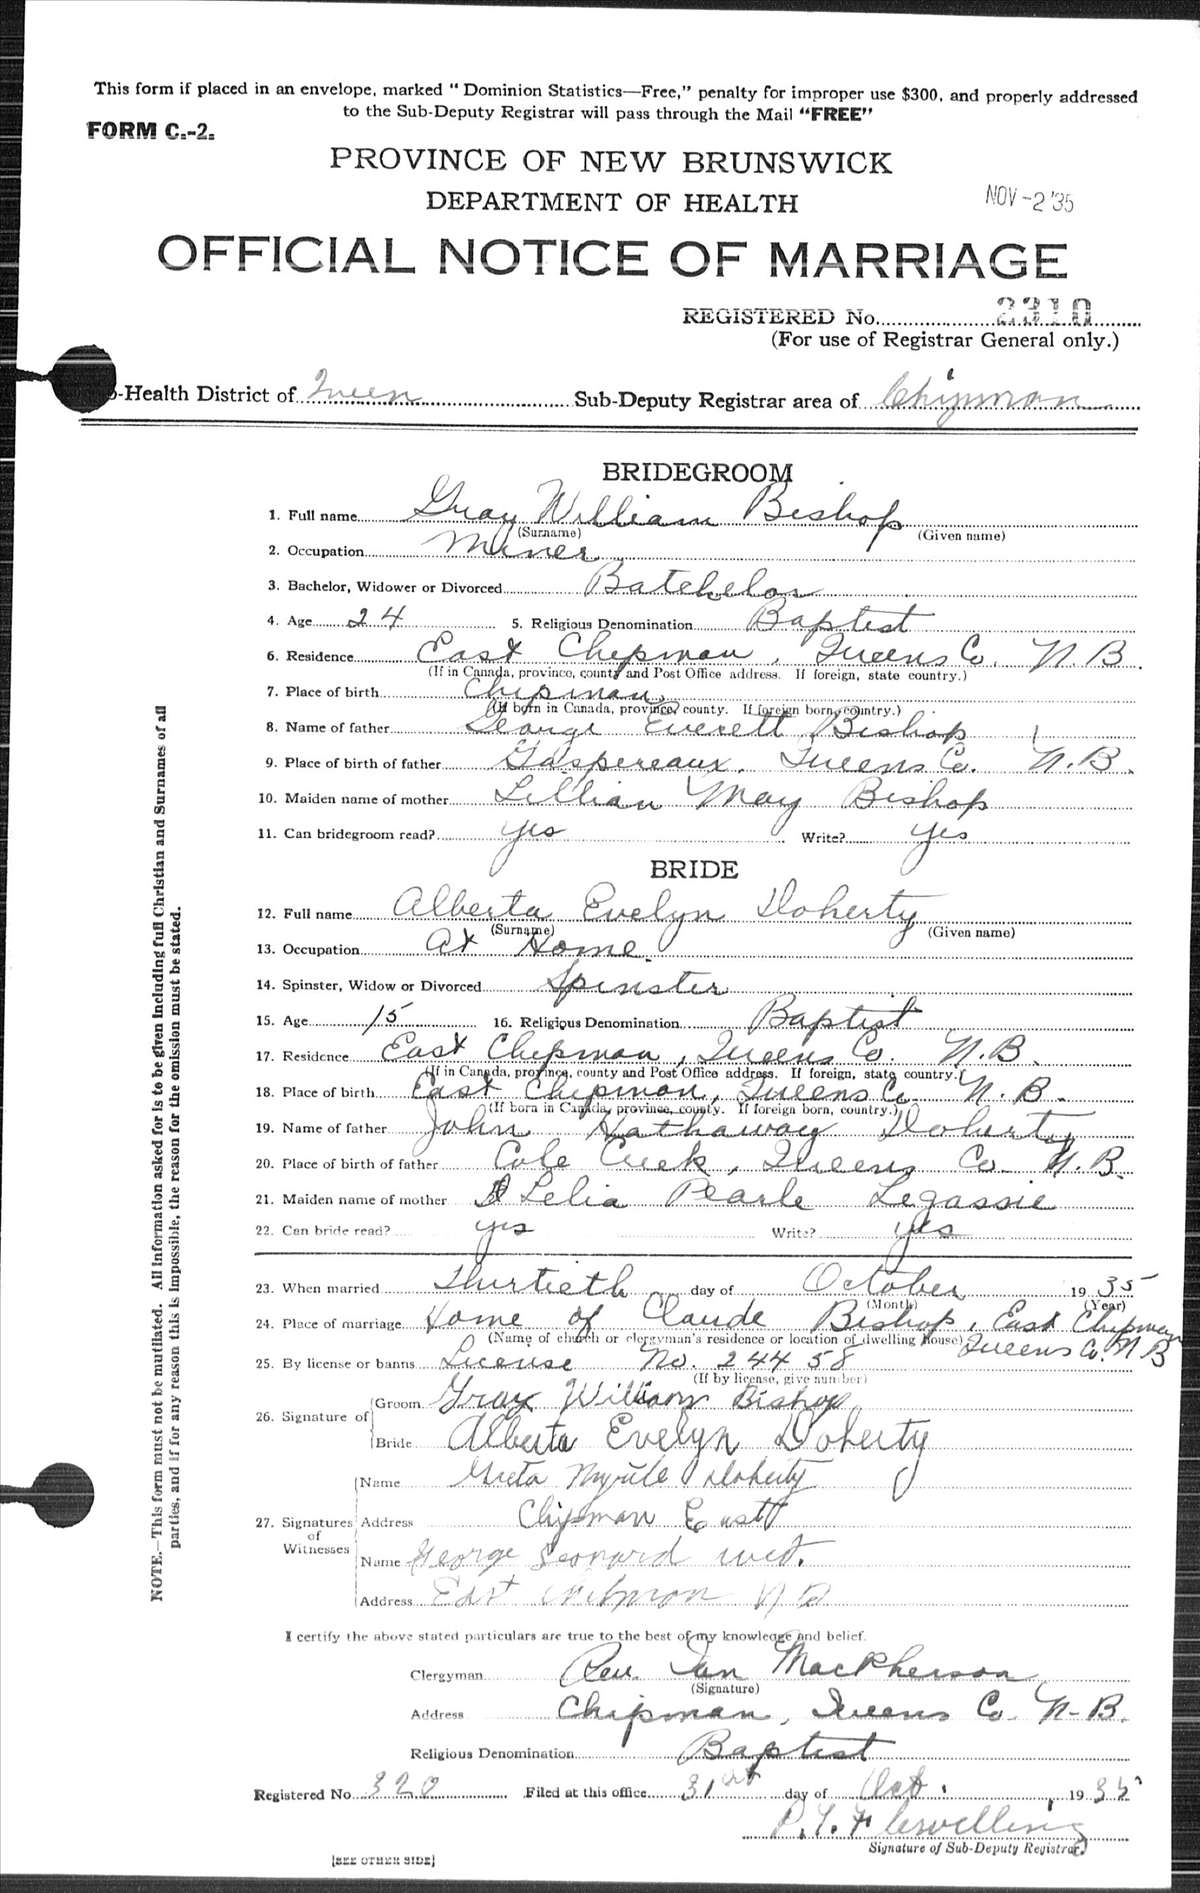 This form if placed in an envelope, marked " Dominion Statistics—Free," penalty for improper use $300, and properly addressed
to the Sub-Deputy Registrar will pass through the Mail "FREE"
FORM C.-2.
PROVINCE OF NEW BRUNSWICK
DEPARTMENT OF HEALTH
NOV -2 '35
OFFICIAL NOTICE OF MARRIAGE
REGISTERED No. 2310
(For use of Registrar General only.)
-Health District of Queen Sub-Deputy Registrar area of Chipman
BRIDEGROOM
1. Full name Gray William Bishop
(Surname) (Given name)
2. Occupation Miner
3. Bachelor, Widower or Divorced Batchelor
4. Age 24 5. Religious Denomination Baptist
6. Residence East Chipman, Queens Co. N.B.
(If in Canada, province, county and Post Office address. If foreign, state country.)
7. Place of birth Chipman
(If born in Canada, province, county. If foreign born, country.)
8. Name of father George Everett Bishop
9. Place of birth of father Gaspereaux, Queens Co. N.B.
10. Maiden name of mother Lillian May Bishop
11. Can bridegroom read? yes Write? yes
BRIDE
12. Full name Alberta Evelyn Doherty
(Surname) (Given name)
13. Occupation At Home.
14. Spinster, Widow or Divorced Spinster
15. Age 15 16. Religious Denomination Baptist
17. Residence East Chipman, Queens Co. N.B.
(If in Canada, province, county and Post Office address. If foreign, state country.)
18. Place of birth East Chipman, Queens Co. N.B.
(If born in Canada, province, county. If foreign born, country.)
19. Name of father John Hathaway Doherty
20. Place of birth of father Cole Creek, Queens Co. N.B.
21. Maiden name of mother Lelia Pearle Legassie
22. Can bride read? yes Write? yes
23. When married Thirtieth day of October 1935
(Month) (Year)
24. Place of marriage Home of Claude Bishop, East Chipman
(Name of church or clergyman's residence or location of dwelling house) Queens Co. N B
25. By license or banns License No. 24458
(If by license, give number)
26. Signature of Groom Gray William Bishop
Bride Alberta Evelyn Doherty
27. Signatures of Witnesses
Name Greta Myrtle Doherty
Address Chipman East
Name George Leonard
Address East Chipman N B
I certify the above stated particulars are true to the best of my knowledge and belief.
Clergyman Rev. Ian MacPherson
(Signature)
Address Chipman, Queens Co. N.B.
Religious Denomination Baptist
Registered No 320 Filed at this office 31st day of Oct. 1935
Flewelling
Signature of Sub-Deputy Registrar.
[SEE OTHER SIDE]
NOTE.—This form must not be mutilated. All information asked for is to be given including full Christian and Surnames of all
parties, and if for any reason this is impossible, the reason for the omission must be stated.